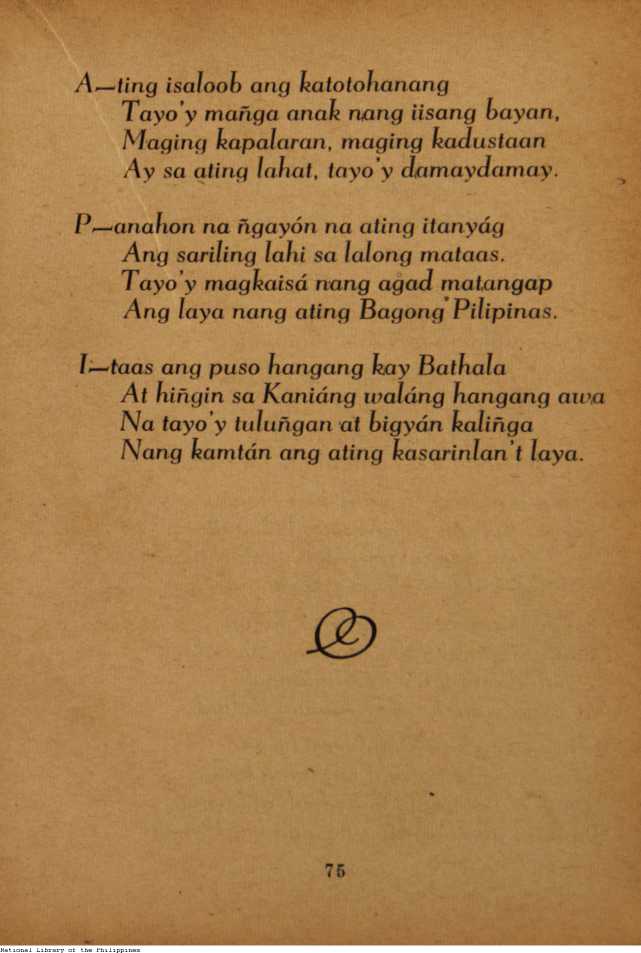 A—ting isaloob ang katotohanang
Tayo'y mañga anak nang iisang bayan,
Maging kapalaran, maging kadustaan
Ay sa ating lahat, tayo'y damaydamay.
P—anahon na ñgayón na ating itanyág
Ang sariling lahi sa lalong mataas.
Tayo'y magkaisá nang agad matangap
Ang laya nang ating Bagong Pilipinas.
I—taas ang puso hangang kay Bathala
At hiñgin sa Kaniáng waláng hangang awa
Na tayo'y tuluñgan at bigyán kaliñga
Nang kamtán ang ating kasarinlan't laya.
75
National Library of the Philippines